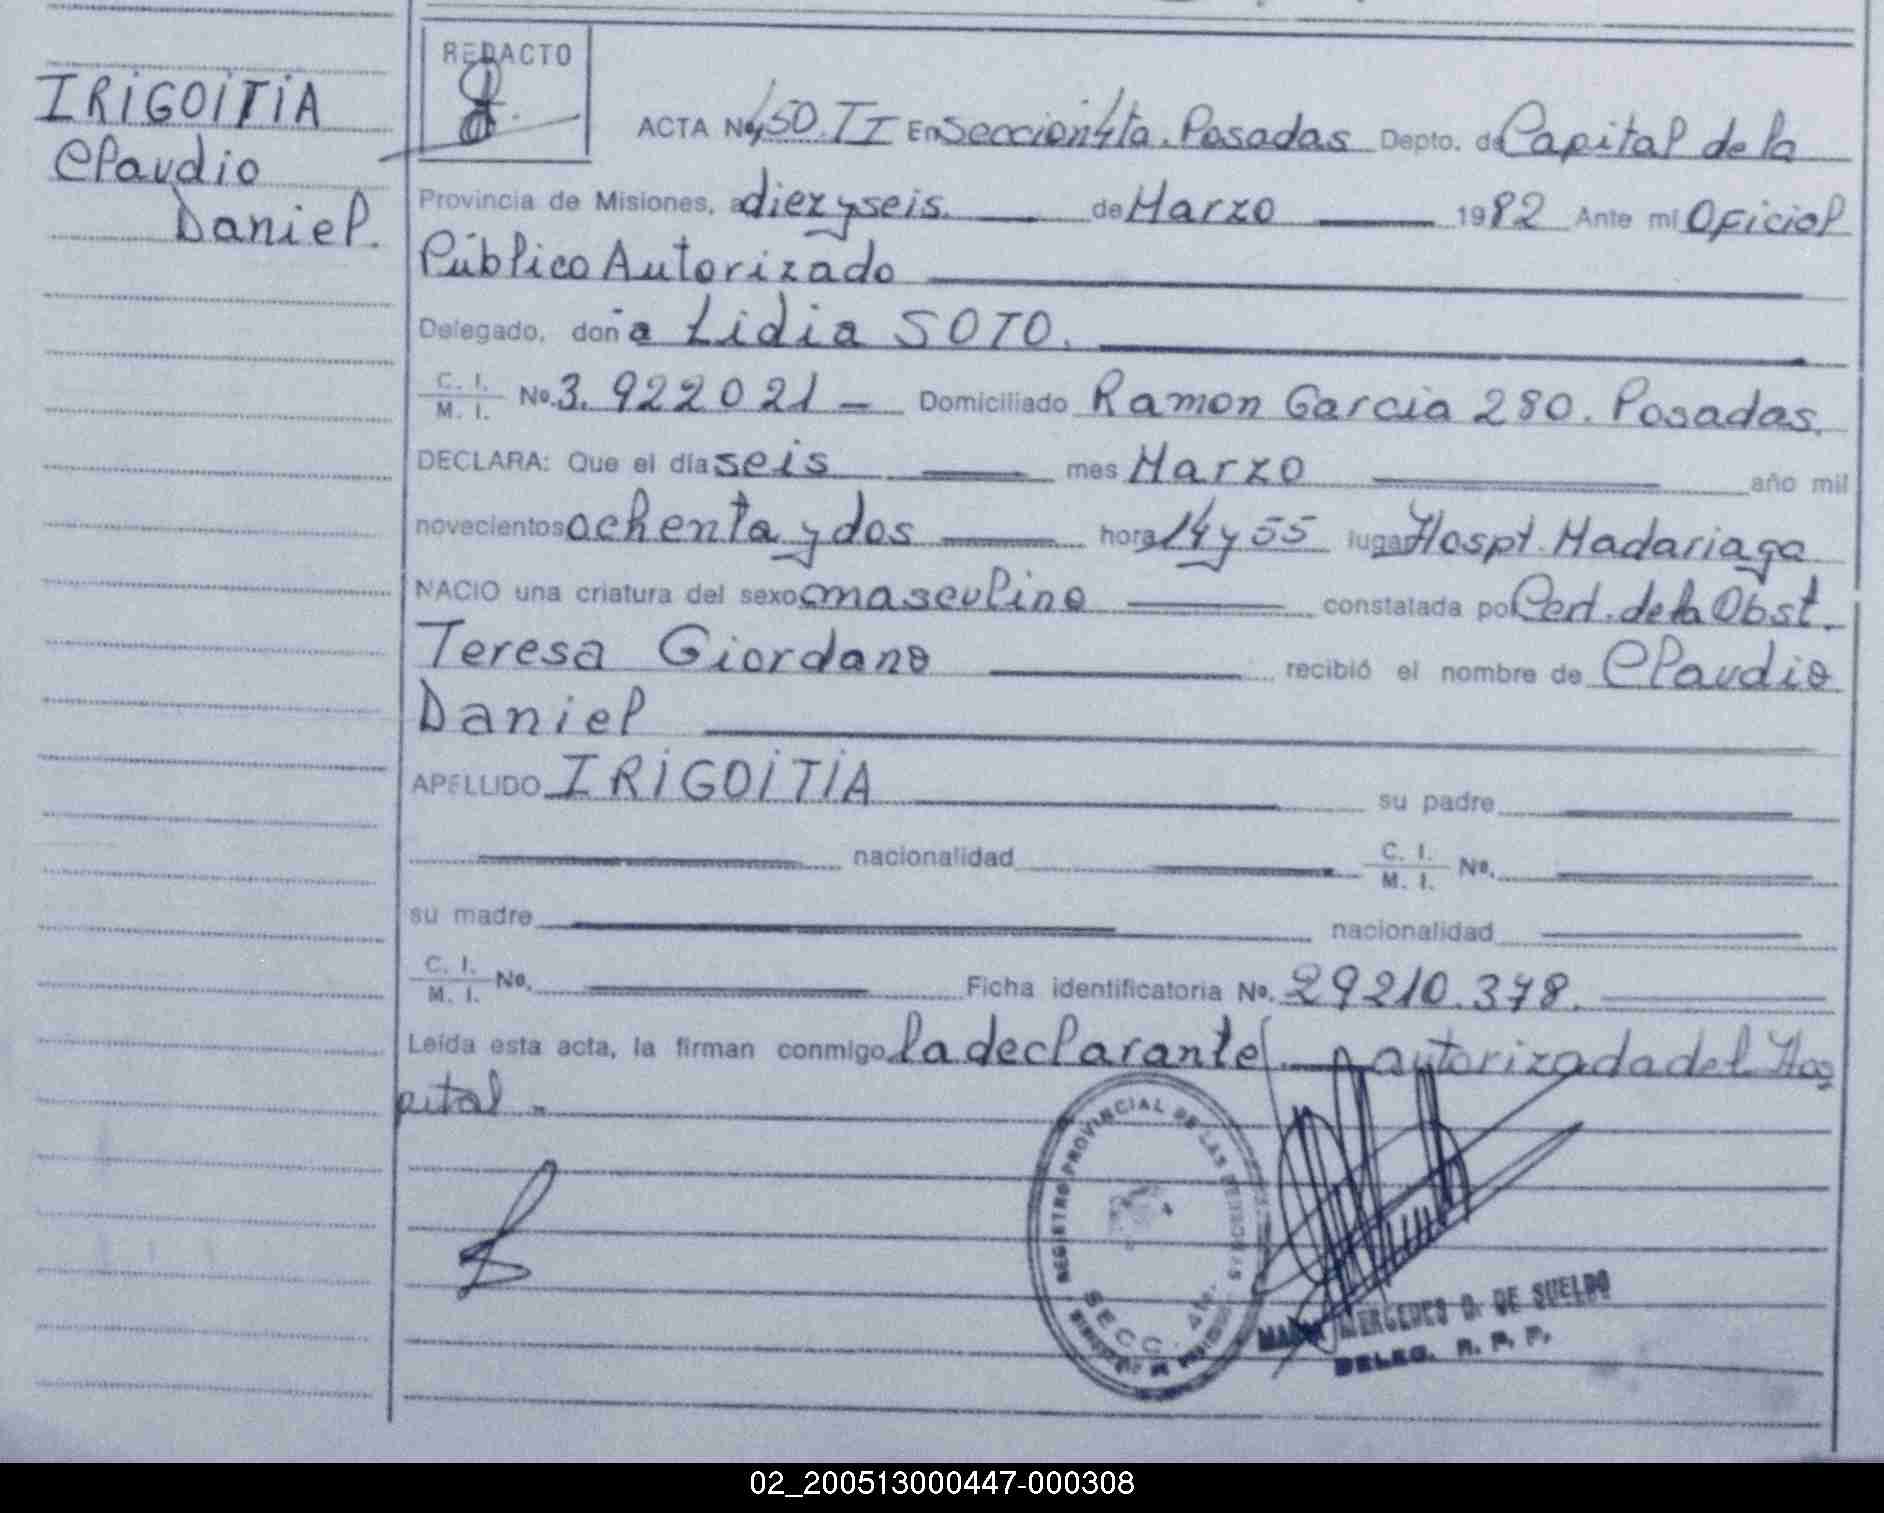 IRIGOITIA
Claudio
Daniel.
REDACTO
ACTA No 450. II En Seccion 4ta. Posadas Depto. de Capital de la
Provincia de Misiones, a diez y seis. de Marzo 1982 Ante mi Oficial
Público Autorizado
Delegado, doña Lidia SOTO.
C. I.
M. I. No. 3. 922021 - Domiciliado Ramon Garcia 280. Posadas.
DECLARA: Que el día seis mes Marzo año mil
novecientos ochenta y dos hora 14 y 55 lugar Hospt. Madariaga
NACIO una criatura del sexo masculino constatada por Cert. de la Obst.
Teresa Giordano recibió el nombre de Claudio
Daniel
APELLIDO IRIGOITIA su padre
nacionalidad C. I.
M. I. No.
su madre nacionalidad
C. I.
M. I. No. Ficha identificatoria No. 29210.378.
Leída esta acta, la firman conmigo la declarante autorizada del Hos
pital -
REGISTRO PROVINCIAL DE LAS PERSONAS
SECC. 4ta.
MARIA MERCEDES D. DE SUELDO
DELEG. R. P. P.
02_200513000447-000308